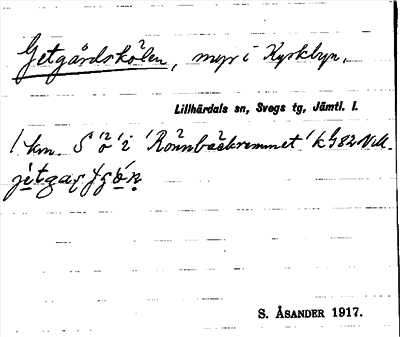 Getgårdskölen, myr i Kyrkbyn.
Lillhärdals sn, Svegs tg, Jämtl. l.
1 km. S ö i Rönnbäcksremmet k G 82
S. ÅSANDER 1917.